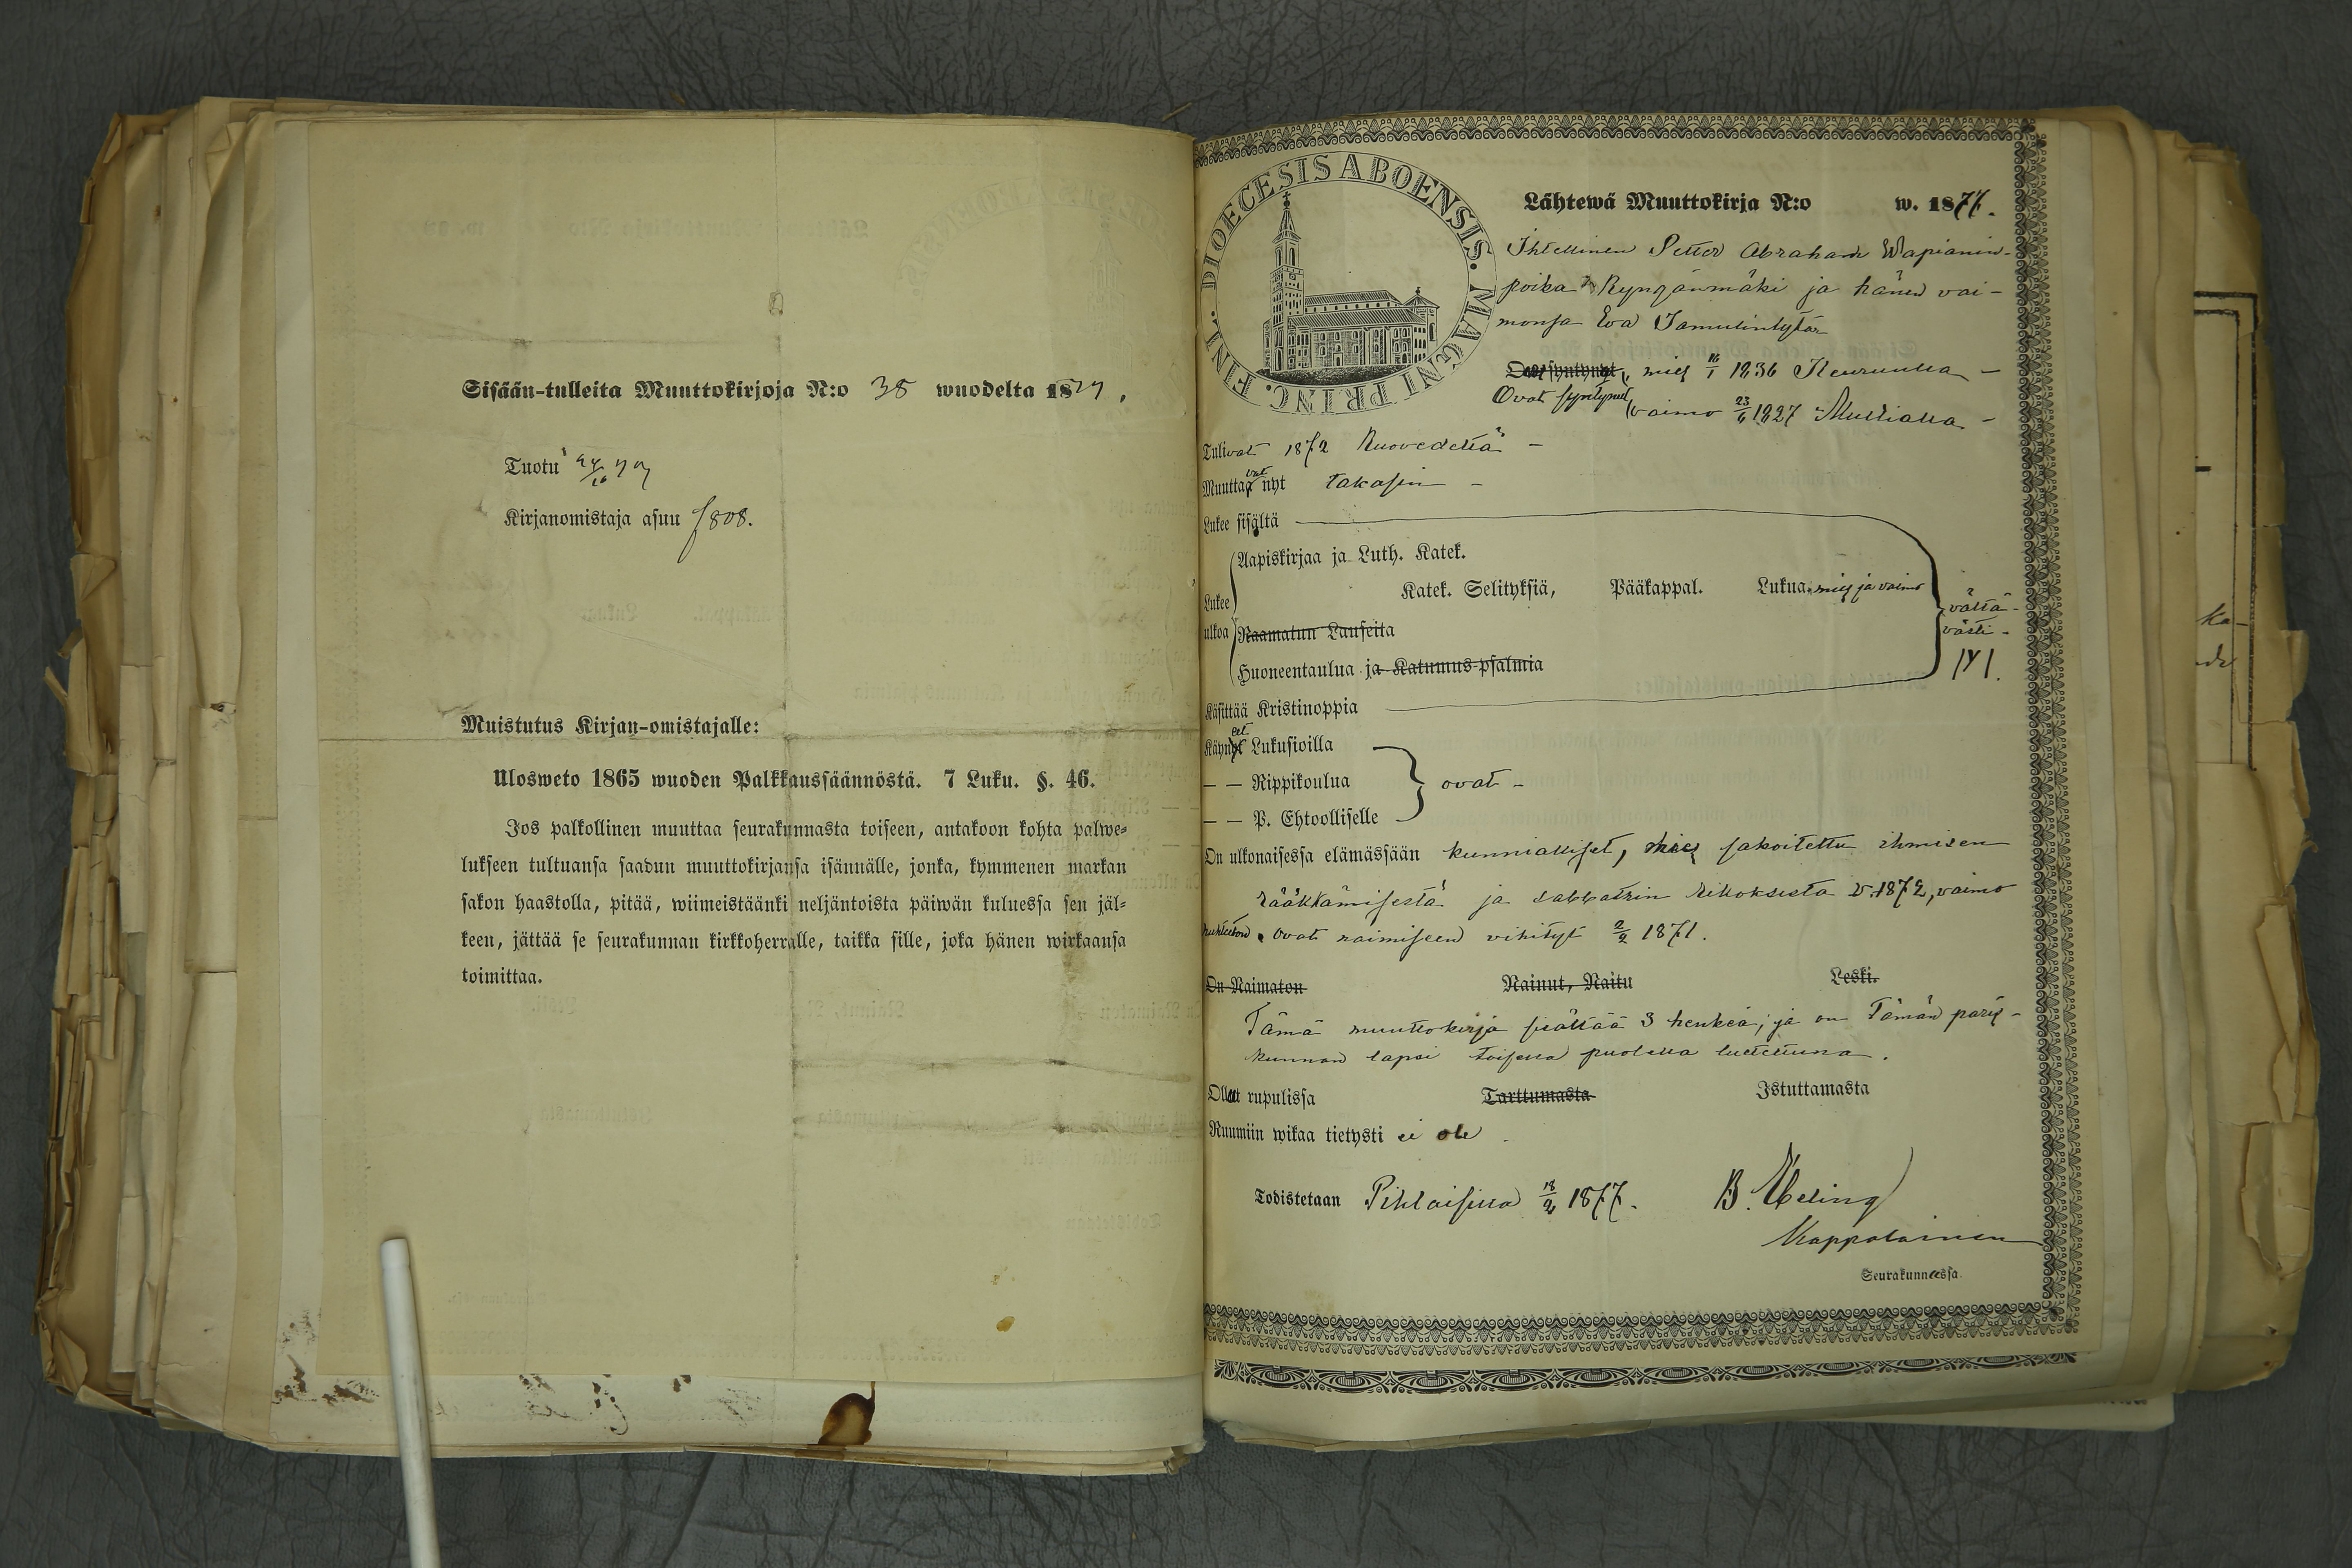 Sisään-tulleita Muuttokirjoja N:o 38 wuodelta 1877.
Tuotu
Kirjanomistaja asuu f 808.
Muistutus Kirjan-omistajalle:
Ulosweto 1865 wuoden Palkkaussäännöstä. 7 Luku. §. 46.
Jos palkollinen muuttaa seurakunnasta toiseen, antakoon kohta palwe-
lukseen tultuansa saadun muuttokirjansa isännälle, jonka, kymmenen markan
sakon haastolla, pitää, wiimeistäänki neljäntoista päiwän kuluessa sen jäl-
keen, jättää se seurakunnan kirkkoherralle, taikka sille, joka hänen wirkaansa
toimittaa.
DIOECESIS ABOENSIS. MAGNI PRINC. FINL.
Lähtewä Muuttokirja N:o w. 1877.
Ihtellinen Petter Abraham Wapianin-
poika Ryngänmäki ja hänen vai-
monsa Eva Samulintytär
mies 16/1 1836 Keuruulla -
Ovat syntynet, vaimo 23/6 1827 Multialla -
Tulivat 1872 Ruovedeltä -
Muuttavat nyt takasin -
Lukee sisältä
Aapiskirjaa ja Luth. Katek.
Lukee ulkoa Katek. Selityksiä, Pääkappal. Lukua mies ja vaimo
vältä-
västi-
Raamatun Lauseita
Huoneentaulua ja Katumus-psalmia
Käsittää Kristinoppia
Käyneet Lukusioilla
— — Rippikoulua ovat -
— — P. Ehtoolliselle
On ulkonaisessa elämässään kunnialliset, mies sakoitettu ihmisen
rääkkämisestä ja sabbatin rikoksesta v. 1872, vaimo
nuhteeton. Ovat naimiseen vihityt 2/2 1871.
On Naimaton Nainut, Naitu Leski.
Tämä muuttokirja sisältää 3 henkeä; ja on Tämän paris-
kunnan lapsi toisella puolella luetettuna.
Olleet rupulissa Tarttumasta Istuttamasta
Ruumiin wikaa tietysti ei ole.
Todistetaan Pihlaisissa 18/2 1877. B. Heling
Kappalainen
Seurakunnassa.